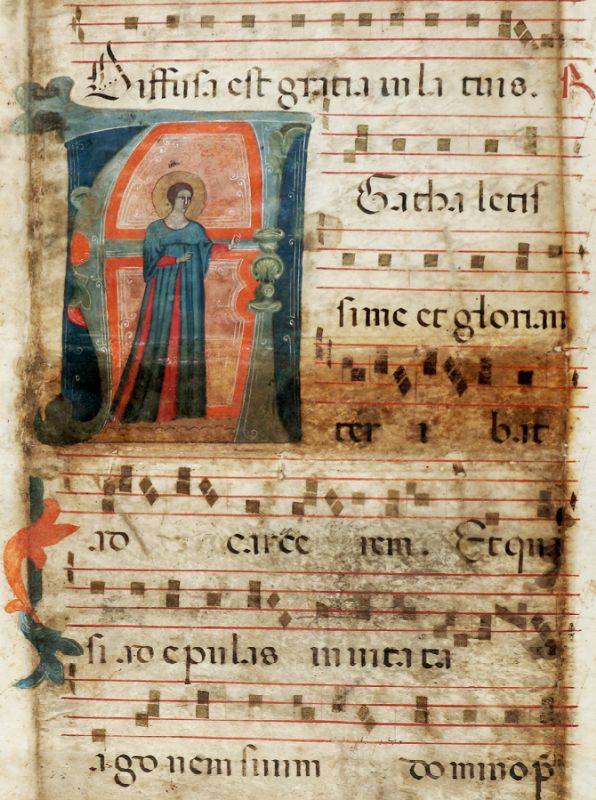 Diffusa est gratia in la tuis. R
AGatha letis
sime et glorian
ter i bat
ad carce rem. Et qua
si ad epulas inuita ta
a go nem suum do mino p